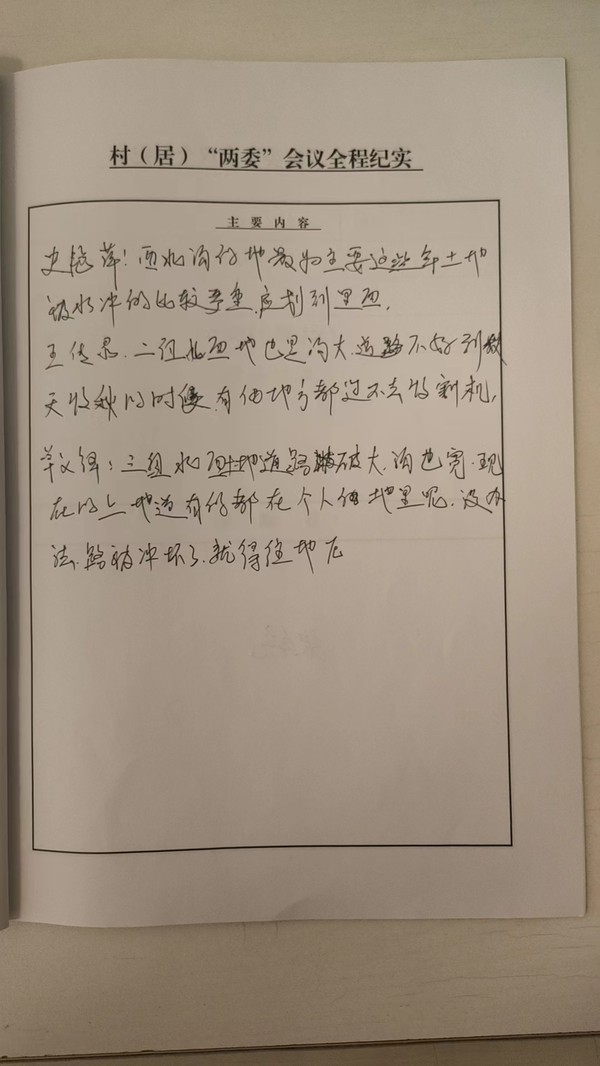 村（居）“两委”会议全程纪实
主要内容
史 萍：西北沟的地最为主要这些年土地
被水冲的比较严重，应划到里面，
王传 . 二组北面地也是沟大，道路不好到秋
天收秋的时候，有的地方都过不去收割机，
：三组北面土地道路破大，沟也宽，现
在的上地道有的都在个人的地里呢，没办
法，路被冲坏了，就得往地